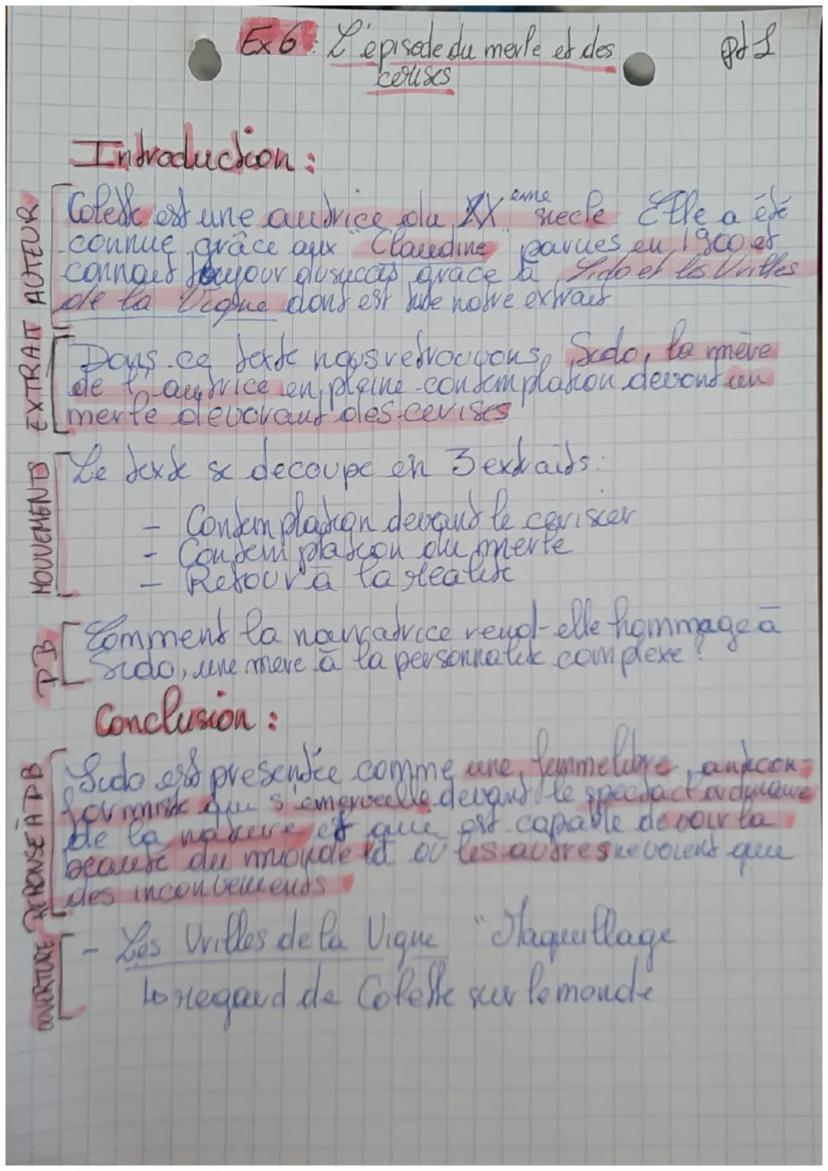 Ex 6: L'épisode du merle et des
cerises
pt 1
Introduction :
AUTEUR
Colette est une autrice du XX ème siecle. Elle a été
connue grâce aux "Claudine" parues en 1900 et
connait toujour du succès grâce à Sido et les Vrilles
de la Vigne dont est tiré notre extrait
EXTRAIT
Dans ce texte nous retrouvons, Sido, la mère
de l'autrice en pleine contemplation devant un
merle devorant des cerises
MOUVEMENTS
Le texte se decoupe en 3 extraits:
- Contemplation devant le cerisier
- Contemplation du merle
- Retour à la réalité
PB
Comment la narratrice rend-elle hommage à
Sido, une mère à la personnalité complexe ?
Conclusion :
REPONSE À PB
Sido est presentée comme une femme libre, anticon-
formiste qui s'émerveille devant le spectacle
de la nature et qui est capable de voir la
beauté du monde là où les autres ne voient que
des inconvenients
OUVERTURE
- Les Vrilles de la Vigne "Maquillage
le regard de Colette sur le monde